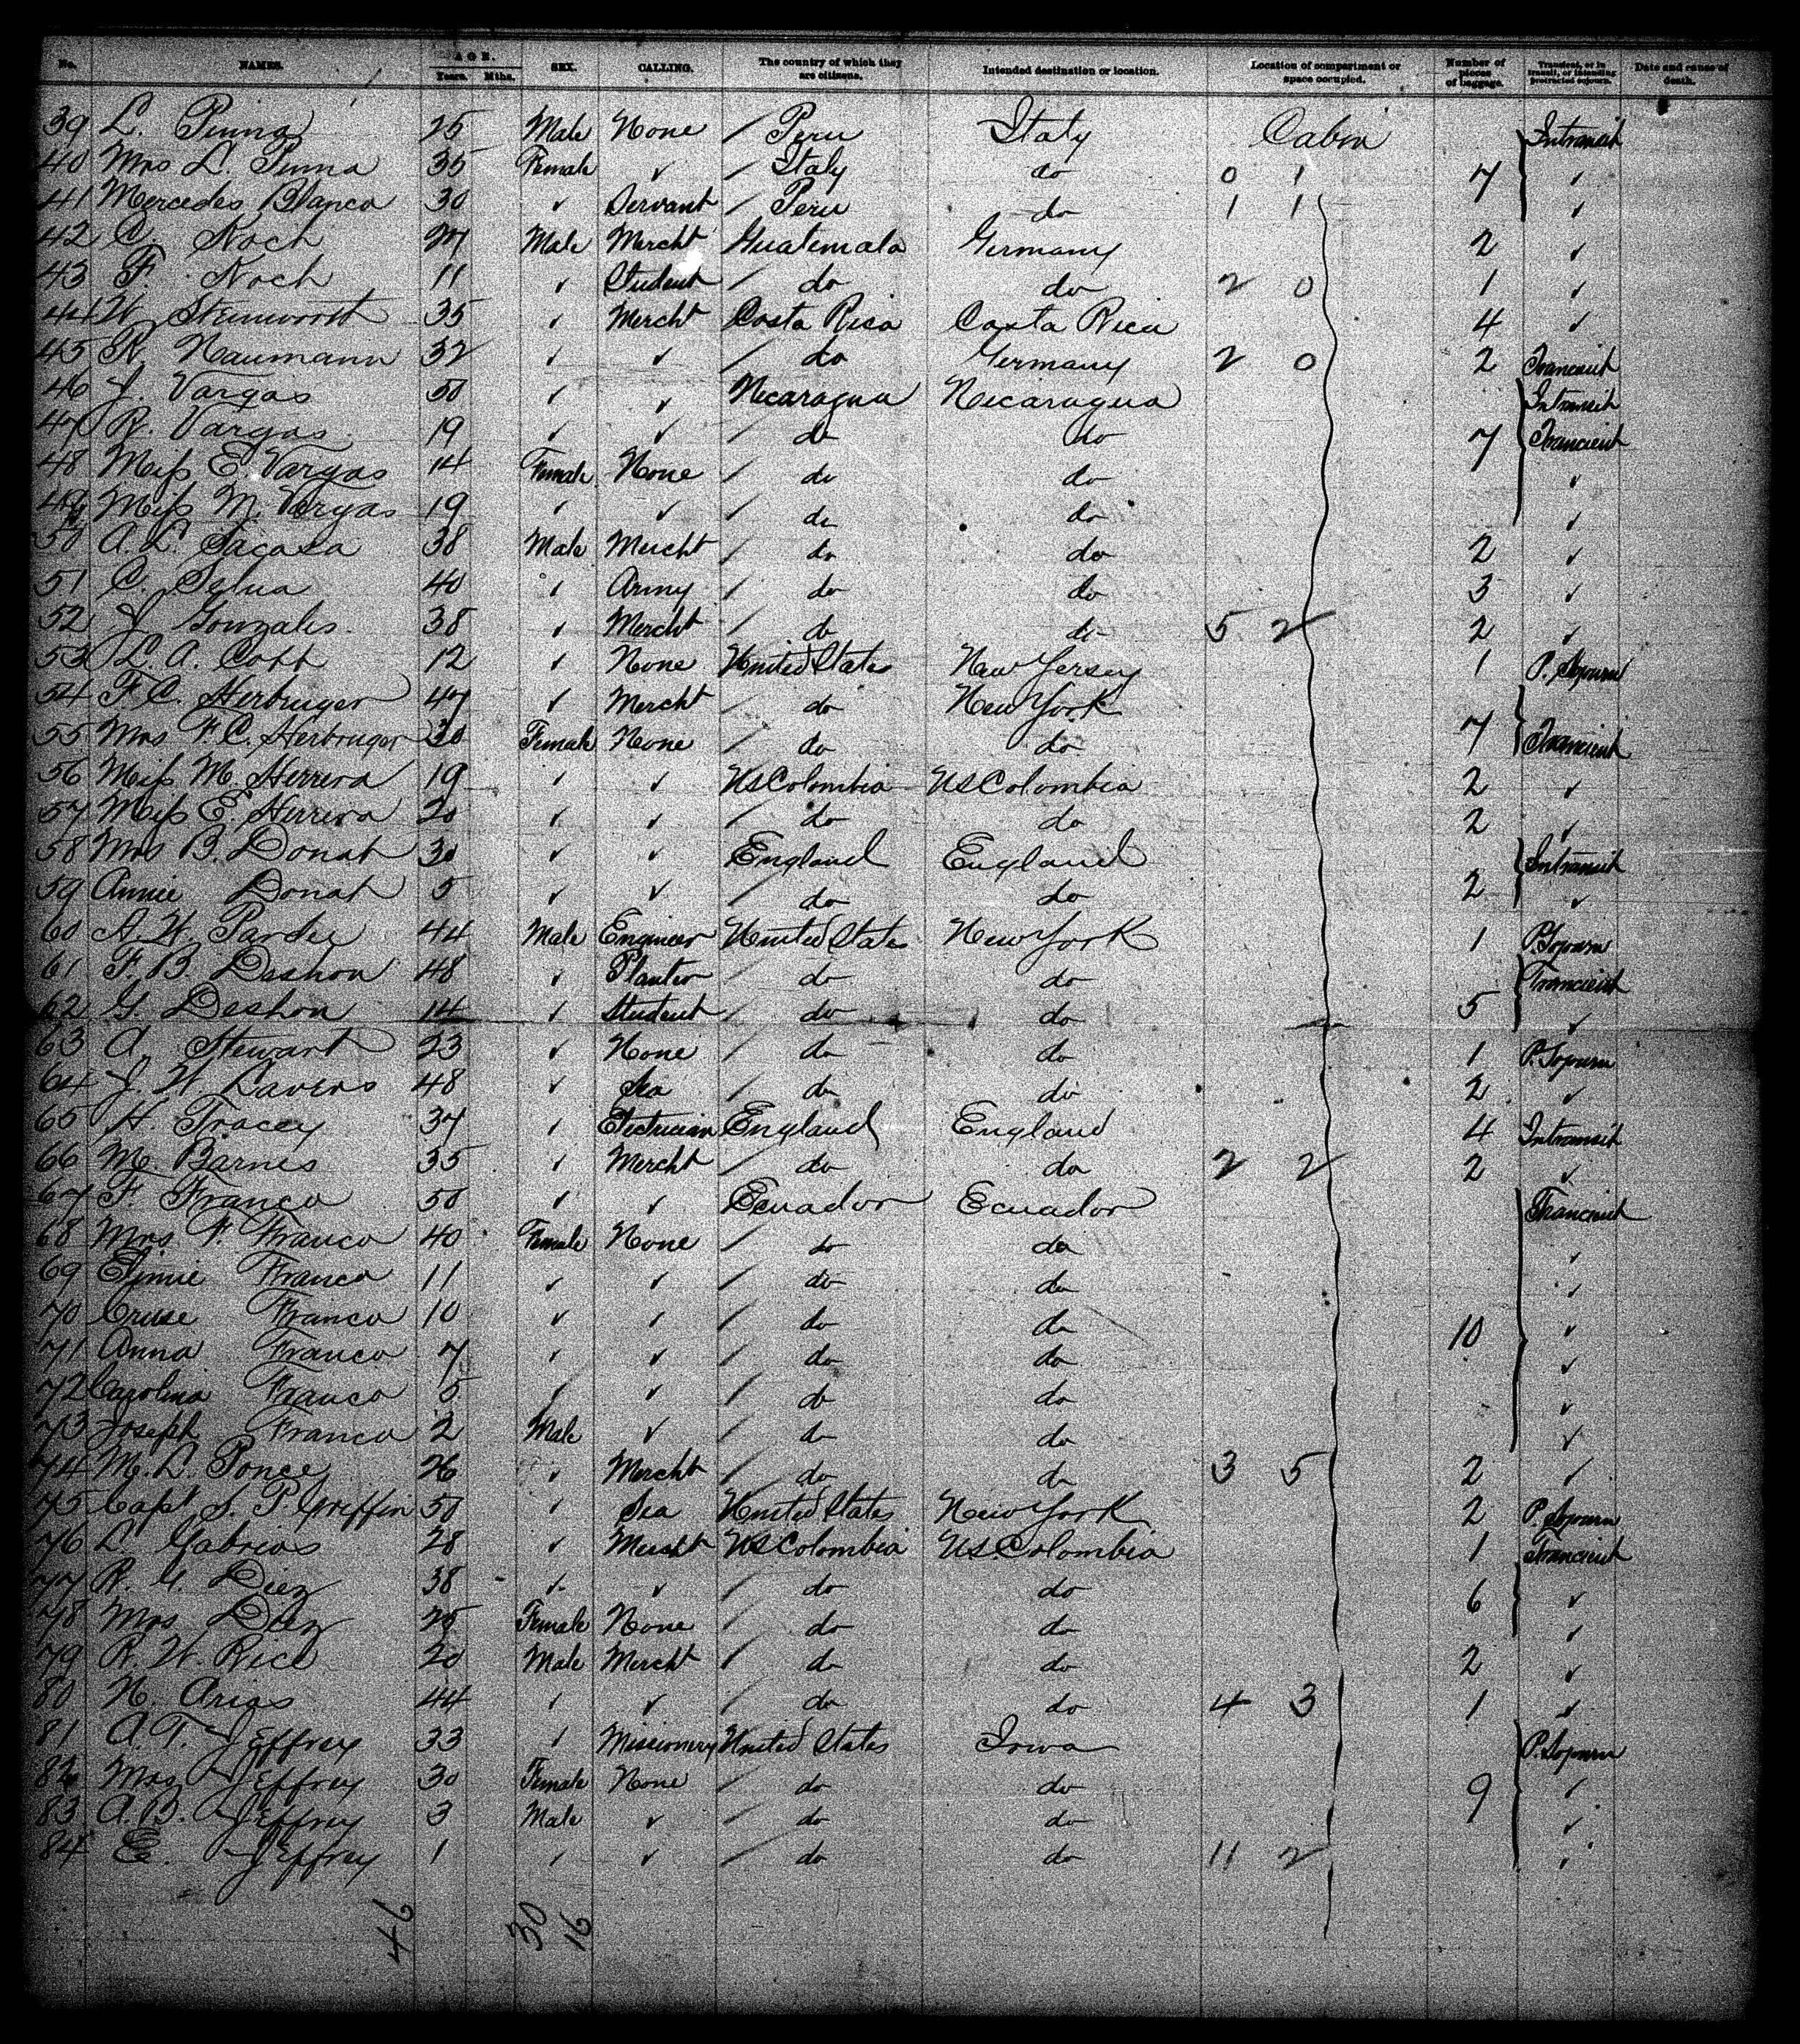 No. NAMES. AGE. Years. Mths. SEX. CALLING. The country of which they are citizens. Intended destination or location. Location of compartment or space occupied. Number of pieces of baggage. Transient, or in transit, or intending protracted sojourn. Date and cause of death.
39 L. Pinna 25 Male None / Peru Italy Cabin Intransit
40 Mrs L. Pinna 35 Female ✓ / Italy do 0 1 7 ✓
41 Mercedes Blanco 30 ✓ Servant / Peru do 1 1 ✓
42 C. Noch 27 Male Mercht Guatemala Germany 2 ✓
43 F. Noch 11 ✓ Student / do do 2 0 1 ✓
44 W. 35 ✓ Mercht Costa Rica Costa Rica 4 ✓
45 R. Naumann 32 ✓ ✓ / do Germany 2 0 2 Trancient
46 J. Vargas 50 ✓ ✓ Nicaragua Nicaragua Intransit
47 R. Vargas 19 ✓ ✓ / do do 7 Trancient
48 Miss E. Vargas 14 Female None / do do ✓
49 Miss M. Vargas 19 ✓ ✓ / do do ✓
50 A. L. Sacasa 38 Male Mercht / do do 2 ✓
51 C. Selva 40 ✓ Army / do do 3 ✓
52 J Gonzales 38 ✓ Mercht / do do 5 2 2 ✓
53 L. A. Cobb 12 ✓ None United States New Jersey 1 P. Sojourn
54 F. C. Herbruger 47 ✓ Mercht / do New York
55 Mrs F. C. Herbruger 30 Female None / do do 7 Trancient
56 Miss M. Herrera 19 ✓ ✓ US Colombia US Colombia 2 ✓
57 Miss E. Herrera 20 ✓ ✓ / do do 2 ✓
58 Mrs B. Donat 30 ✓ ✓ England England Intransit
59 Annie Donat 5 ✓ ✓ / do do 2 ✓
60 A. W. Pardee 44 Male Engineer United States New York 1 P. Sojourn
61 F. B. Deshon 48 ✓ Planter / do do Trancient
62 G. Deshon 14 ✓ Student / do do 5 ✓
63 A. Stewart 23 ✓ None / do do 1 P. Sojourn
64 J. W. Lavers 48 ✓ Sea / do do 2 ✓
65 H. Tracey 37 ✓ Electrician England England 4 Intransit
66 M. Barnes 35 ✓ Mercht / do do 2 2 2 ✓
67 F. Franco 50 ✓ ✓ Ecuador Ecuador Trancient
68 Mrs F. Franco 40 Female None / do do ✓
69 Franco 11 ✓ ✓ / do do ✓
70 Cruse Franco 10 ✓ ✓ / do do 10 ✓
71 Anna Franco 7 ✓ ✓ / do do ✓
72 Carolina Franco 5 ✓ ✓ / do do ✓
73 Joseph Franco 2 Male ✓ / do do ✓
74 M. L. Ponce 26 ✓ Mercht / do do 3 5 2 ✓
75 Capt S. P. Griffin 50 ✓ Sea United States New York 2 P. Sojourn
76 L. 28 ✓ Mercht US Colombia US. Colombia 1 Trancient
77 R. G. Diez 38 ✓ ✓ / do do 6 ✓
78 Mrs Diez 25 Female None / do do ✓
79 R. W. Rice 20 Male Mercht / do do 2 ✓
80 N. Arias 44 ✓ ✓ / do do 4 3 1 ✓
81 A. T. Jeffrey 33 ✓ Missionery United States Iowa P. Sojourn
82 Mrs Jeffrey 30 Female None / do do 9 ✓
83 A. B. Jeffrey 3 Male ✓ / do do ✓
84 E. Jeffrey 1 ✓ ✓ / do do 11 2 ✓
46 30 16